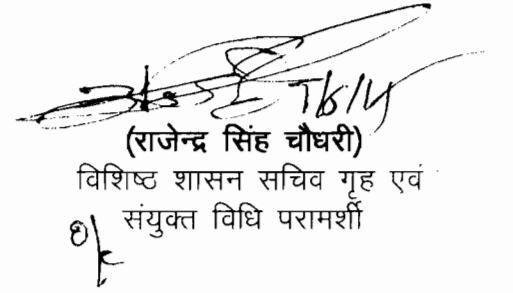 7/5/14
(राजेन्द्र सिंह चौधरी)
विशिष्ठ शासन सचिव गृह एवं
संयुक्त विधि परामर्शी